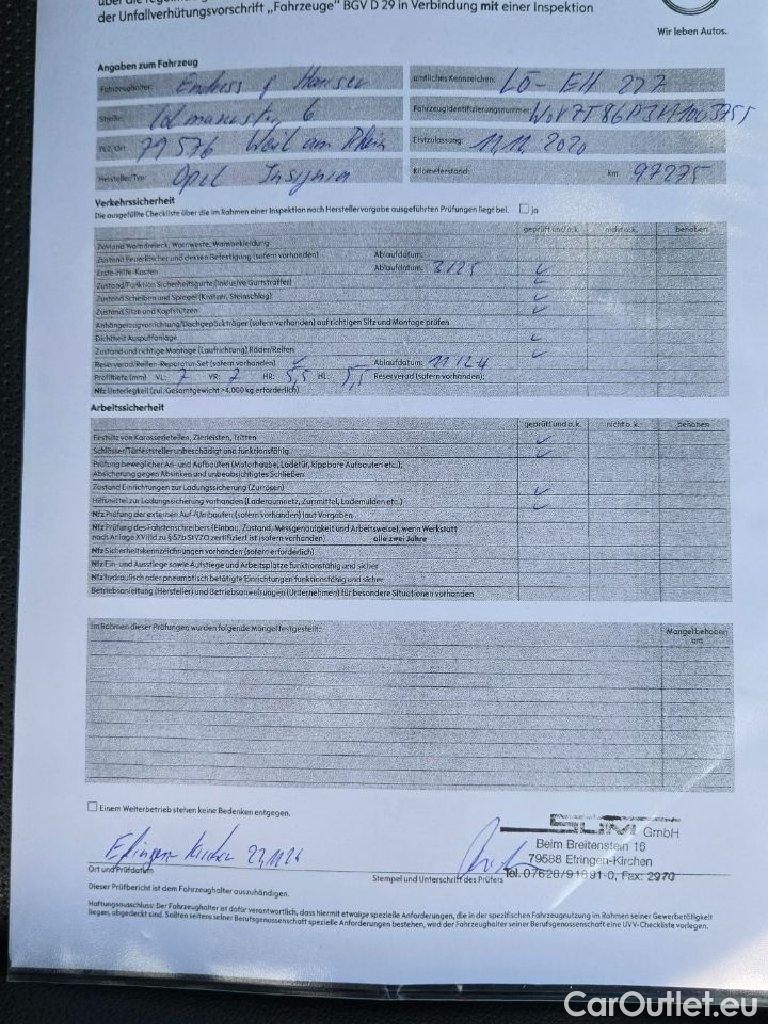 der Unfallverhütungsvorschrift „Fahrzeuge" BGV D 29 in Verbindung mit einer Inspektion
Wir leben Autos.
Angaben zum Fahrzeug
Fahrzeughalter: Endress & Hauser amtliches Kennzeichen: LÖ-EH 227
Straße: 6 Fahrzeugidentifizierungsnummer:
PLZ, Ort: 79576 Weil am Rhein Erstzulassung: 11.11.2020
Hersteller/Typ: Opel Insignia Kilometerstand: km 97275
Verkehrssicherheit
Die ausgefüllte Checkliste über die im Rahmen einer Inspektion nach Herstellervorgabe ausgeführten Prüfungen liegt bei. ja
geprüft und o.k. nicht o.k. behoben
Zustand Warndreieck, Warnweste, Warnbekleidung
Zustand Feuerlöscher und dessen Befestigung (sofern vorhanden) Ablaufdatum:
Erste-Hilfe-Kasten Ablaufdatum: 3/25
Zustand/Funktion Sicherheitsgurte (inklusive Gurtstraffer)
Zustand Scheiben und Spiegel (Kratzer, Steinschlag)
Zustand Sitze und Kopfstützen
Anhängerzugvorrichtung/Dachgepäckträger (sofern vorhanden) auf richtigen Sitz und Montage prüfen
Dichtheit Auspuffanlage
Zustand und richtige Montage (Laufrichtung) Räder/Reifen
Reserverad/Reifen-Reparatur-Set (sofern vorhanden) Ablaufdatum: 11/24
Profiltiefe (mm) VL: 7 VR: 7 HR: 5,5 HL: 5,5 Reserverad (sofern vorhanden):
Nfz Unterlegkeil (zul. Gesamtgewicht >4.000 kg erforderlich)
Arbeitssicherheit
geprüft und o.k. nicht o.k. behoben
Festsitz von Karosserieteilen, Zierleisten, Tritten
Schlösser/Türfeststeller unbeschädigt und funktionsfähig
Prüfung beweglicher An- und Aufbauten (Motorhaube, Ladetür, kippbare Aufbauten etc.);
Absicherung gegen Absinken und unbeabsichtigtes Schließen
Zustand Einrichtungen zur Ladungssicherung (Zurrösen)
Hilfsmittel zur Ladungssicherung vorhanden (Laderaumnetz, Zurrmittel, Lademulden etc.)
Nfz Prüfung der externen Auf-/Umbauten (sofern vorhanden) laut Vorgaben
Nfz Prüfung des Fahrtenschreibers (Einbau, Zustand, Messgenauigkeit und Arbeitsweise), wenn Werkstatt
nach Anlage XVIIId zu § 57b StVZO zertifiziert ist (sofern vorhanden) alle zwei Jahre
Nfz Sicherheitskennzeichnungen vorhanden (sofern erforderlich)
Nfz Ein- und Ausstiege sowie Aufstiege und Arbeitsplätze funktionsfähig und sicher
Nfz hydraulisch oder pneumatisch betätigte Einrichtungen funktionsfähig und sicher
Betriebsanleitung (Hersteller) und Betriebsanweisungen (Unternehmen) für besondere Situationen vorhanden
Im Rahmen dieser Prüfungen wurden folgende Mängel festgestellt: Mängel behoben
am
Einem Weiterbetrieb stehen keine Bedenken entgegen.
SÜMA GmbH
Beim Breitenstein 16
79588 Efringen-Kirchen
Tel. 07628/91891-0, Fax: 2970
Efringen-Kirchen 22.11.24
Ort und Prüfdatum Stempel und Unterschrift des Prüfers
Dieser Prüfbericht ist dem Fahrzeughalter auszuhändigen.
Haftungsausschluss: Der Fahrzeughalter ist dafür verantwortlich, dass hiermit etwaige spezielle Anforderungen, die in der spezifischen Fahrzeugnutzung im Rahmen seiner Gewerbetätigkeit
liegen, abgedeckt sind. Sollten seitens seiner Berufsgenossenschaft spezielle Anforderungen bestehen, wird der Fahrzeughalter seiner Berufsgenossenschaft eine UVV-Checkliste vorlegen.
CarOutlet.eu